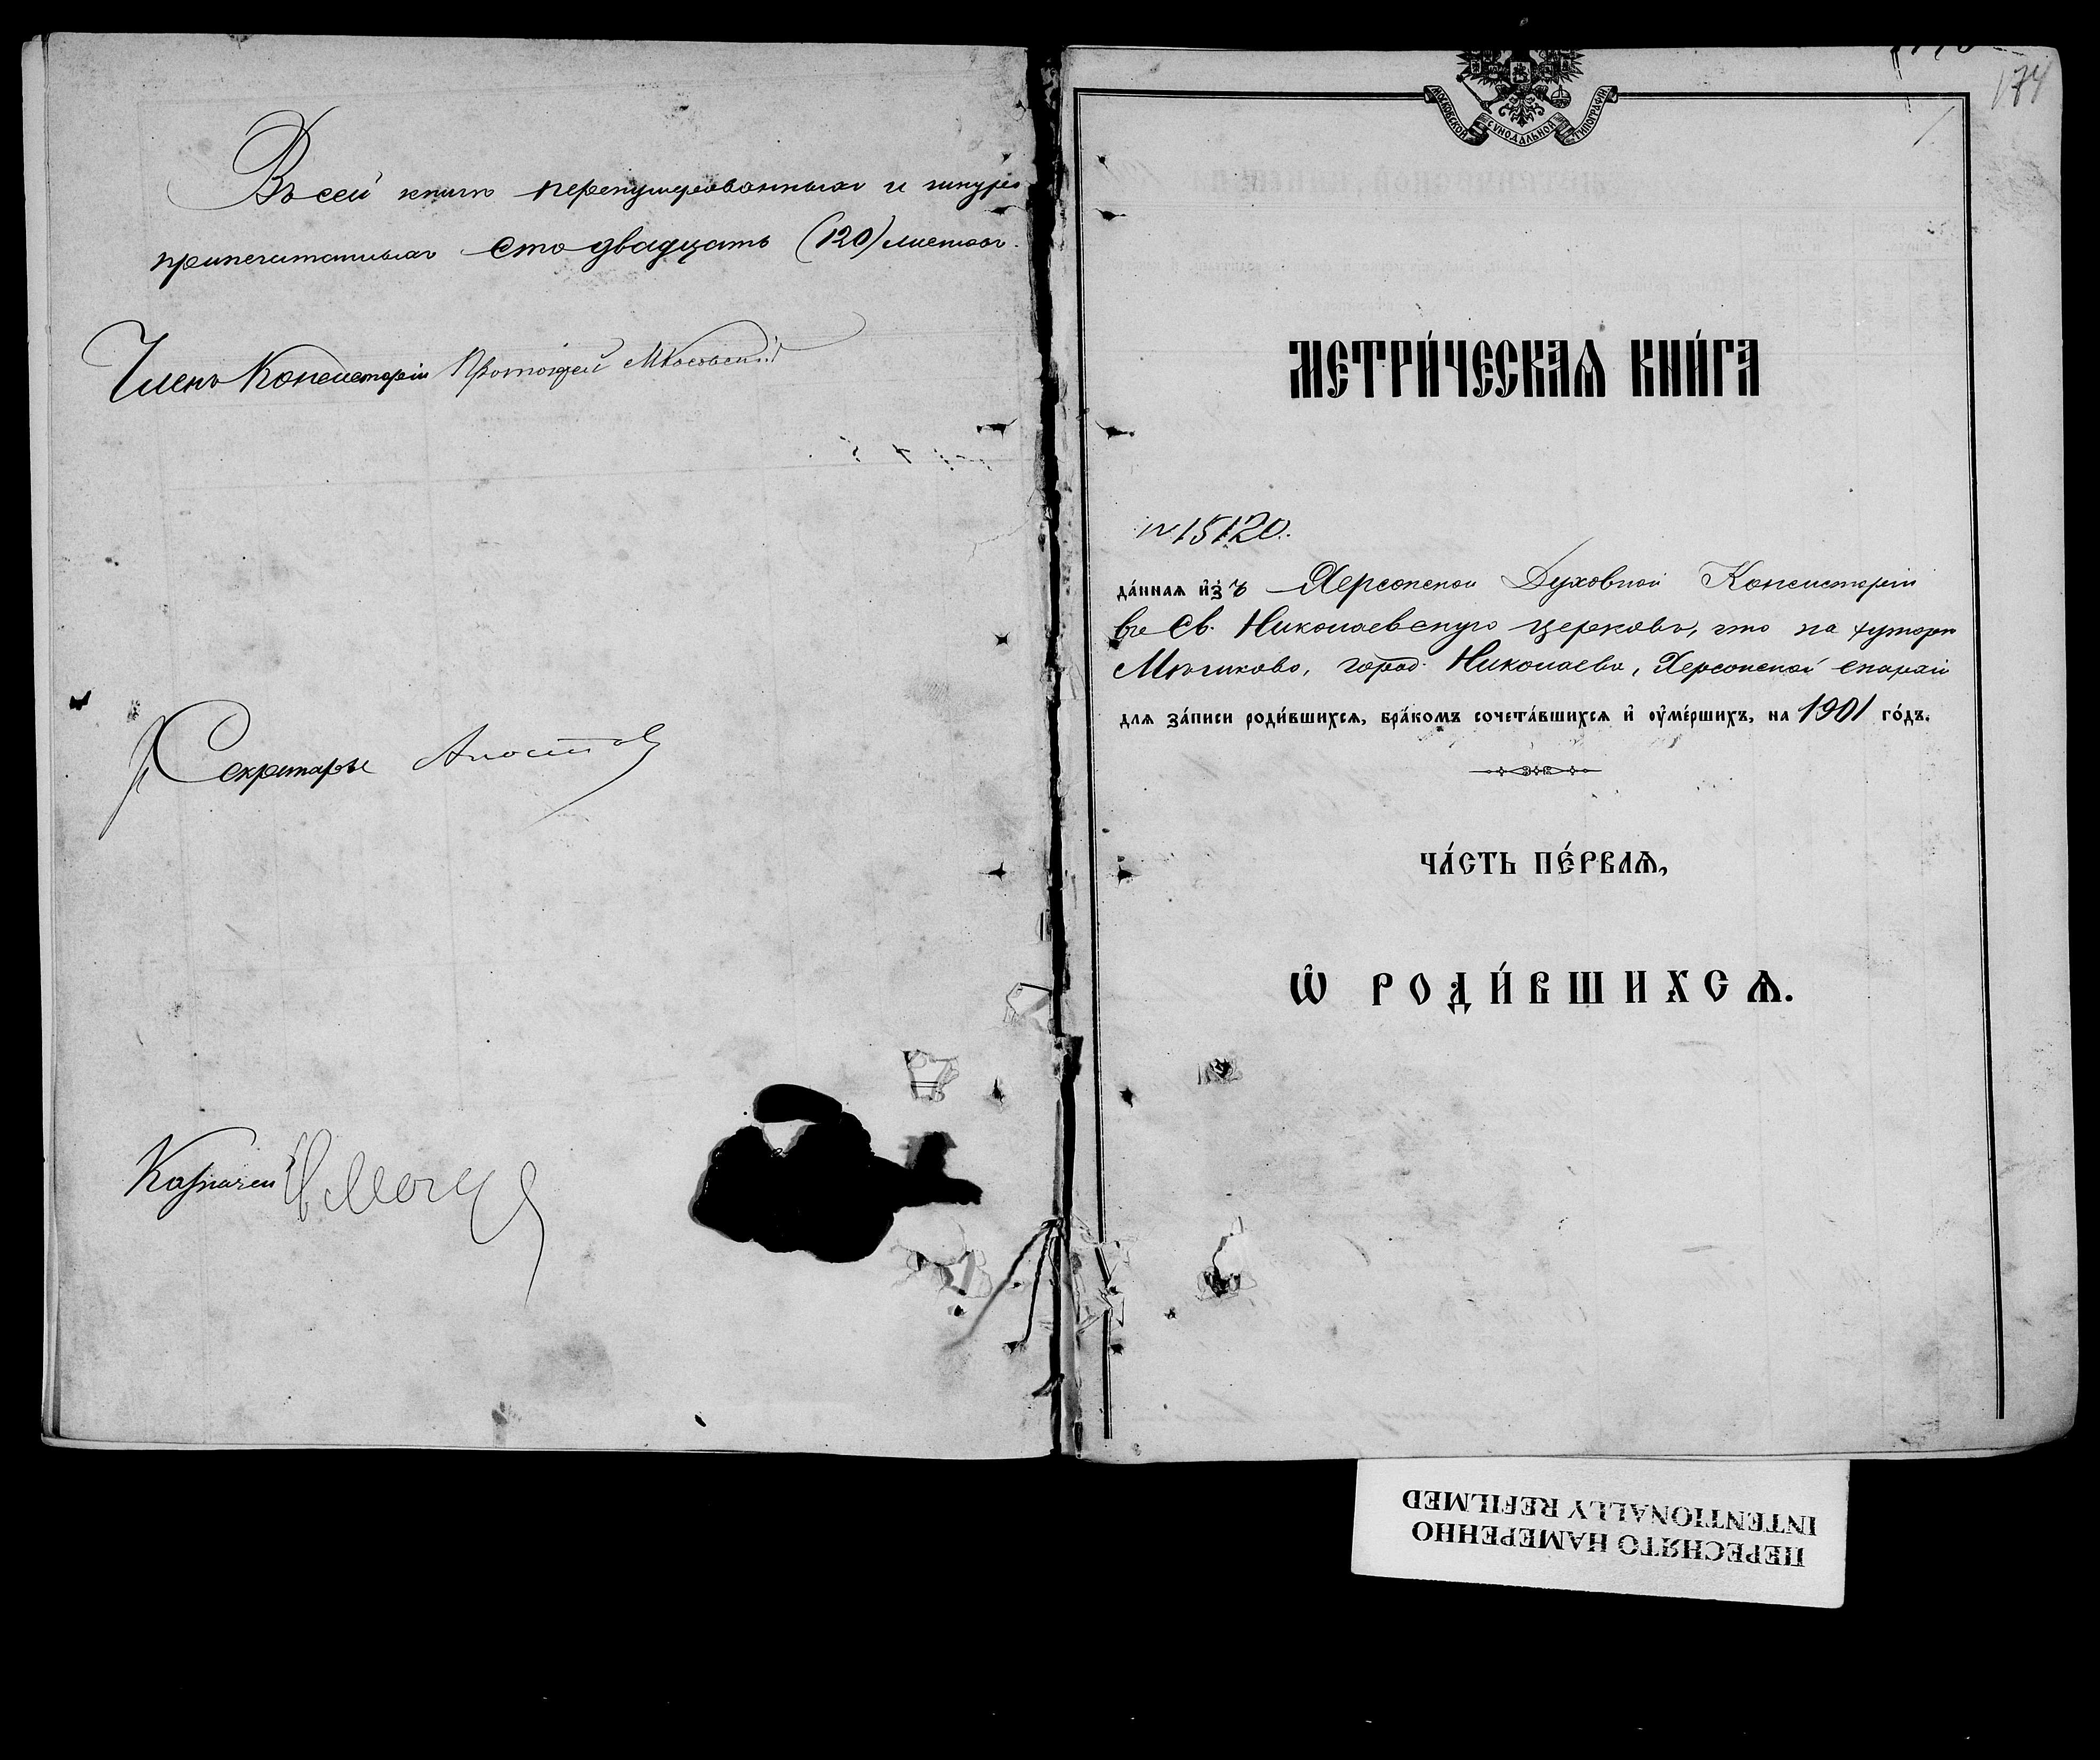 Въ сей книгѣ перенумерованныхъ и шнуро
припечатанныхъ сто двадцать (120) листовъ.
Членъ Консисторіи Протоіерей
Секретарь
Казначей
174
МОСКОВСКОЙ СѴНОДАЛЬНОЙ ТИПОГРАФІИ
МЕТРИ́ЧЕСКАѦ КНИ́ГА
№ 15120.
да́ннаѧ и҆зъ Херсонской Духовной Консисторіи
въ Св. Николаевскую церковь, что на хуторѣ
Мѣшково, город. Николаева, Херсонской епархіи
длѧ за́писи роди́вшихсѧ, бра́комъ сочета́вшихсѧ и҆ ѹ҆ме́ршихъ, на 1901 го́дъ.
ЧА́СТЬ ПЕ́РВАѦ,
Ѡ҆ РОДИ́ВШИХСѦ.
ПЕРЕСНЯТО НАМЕРЕННО
INTENTIONALLY REFILMED